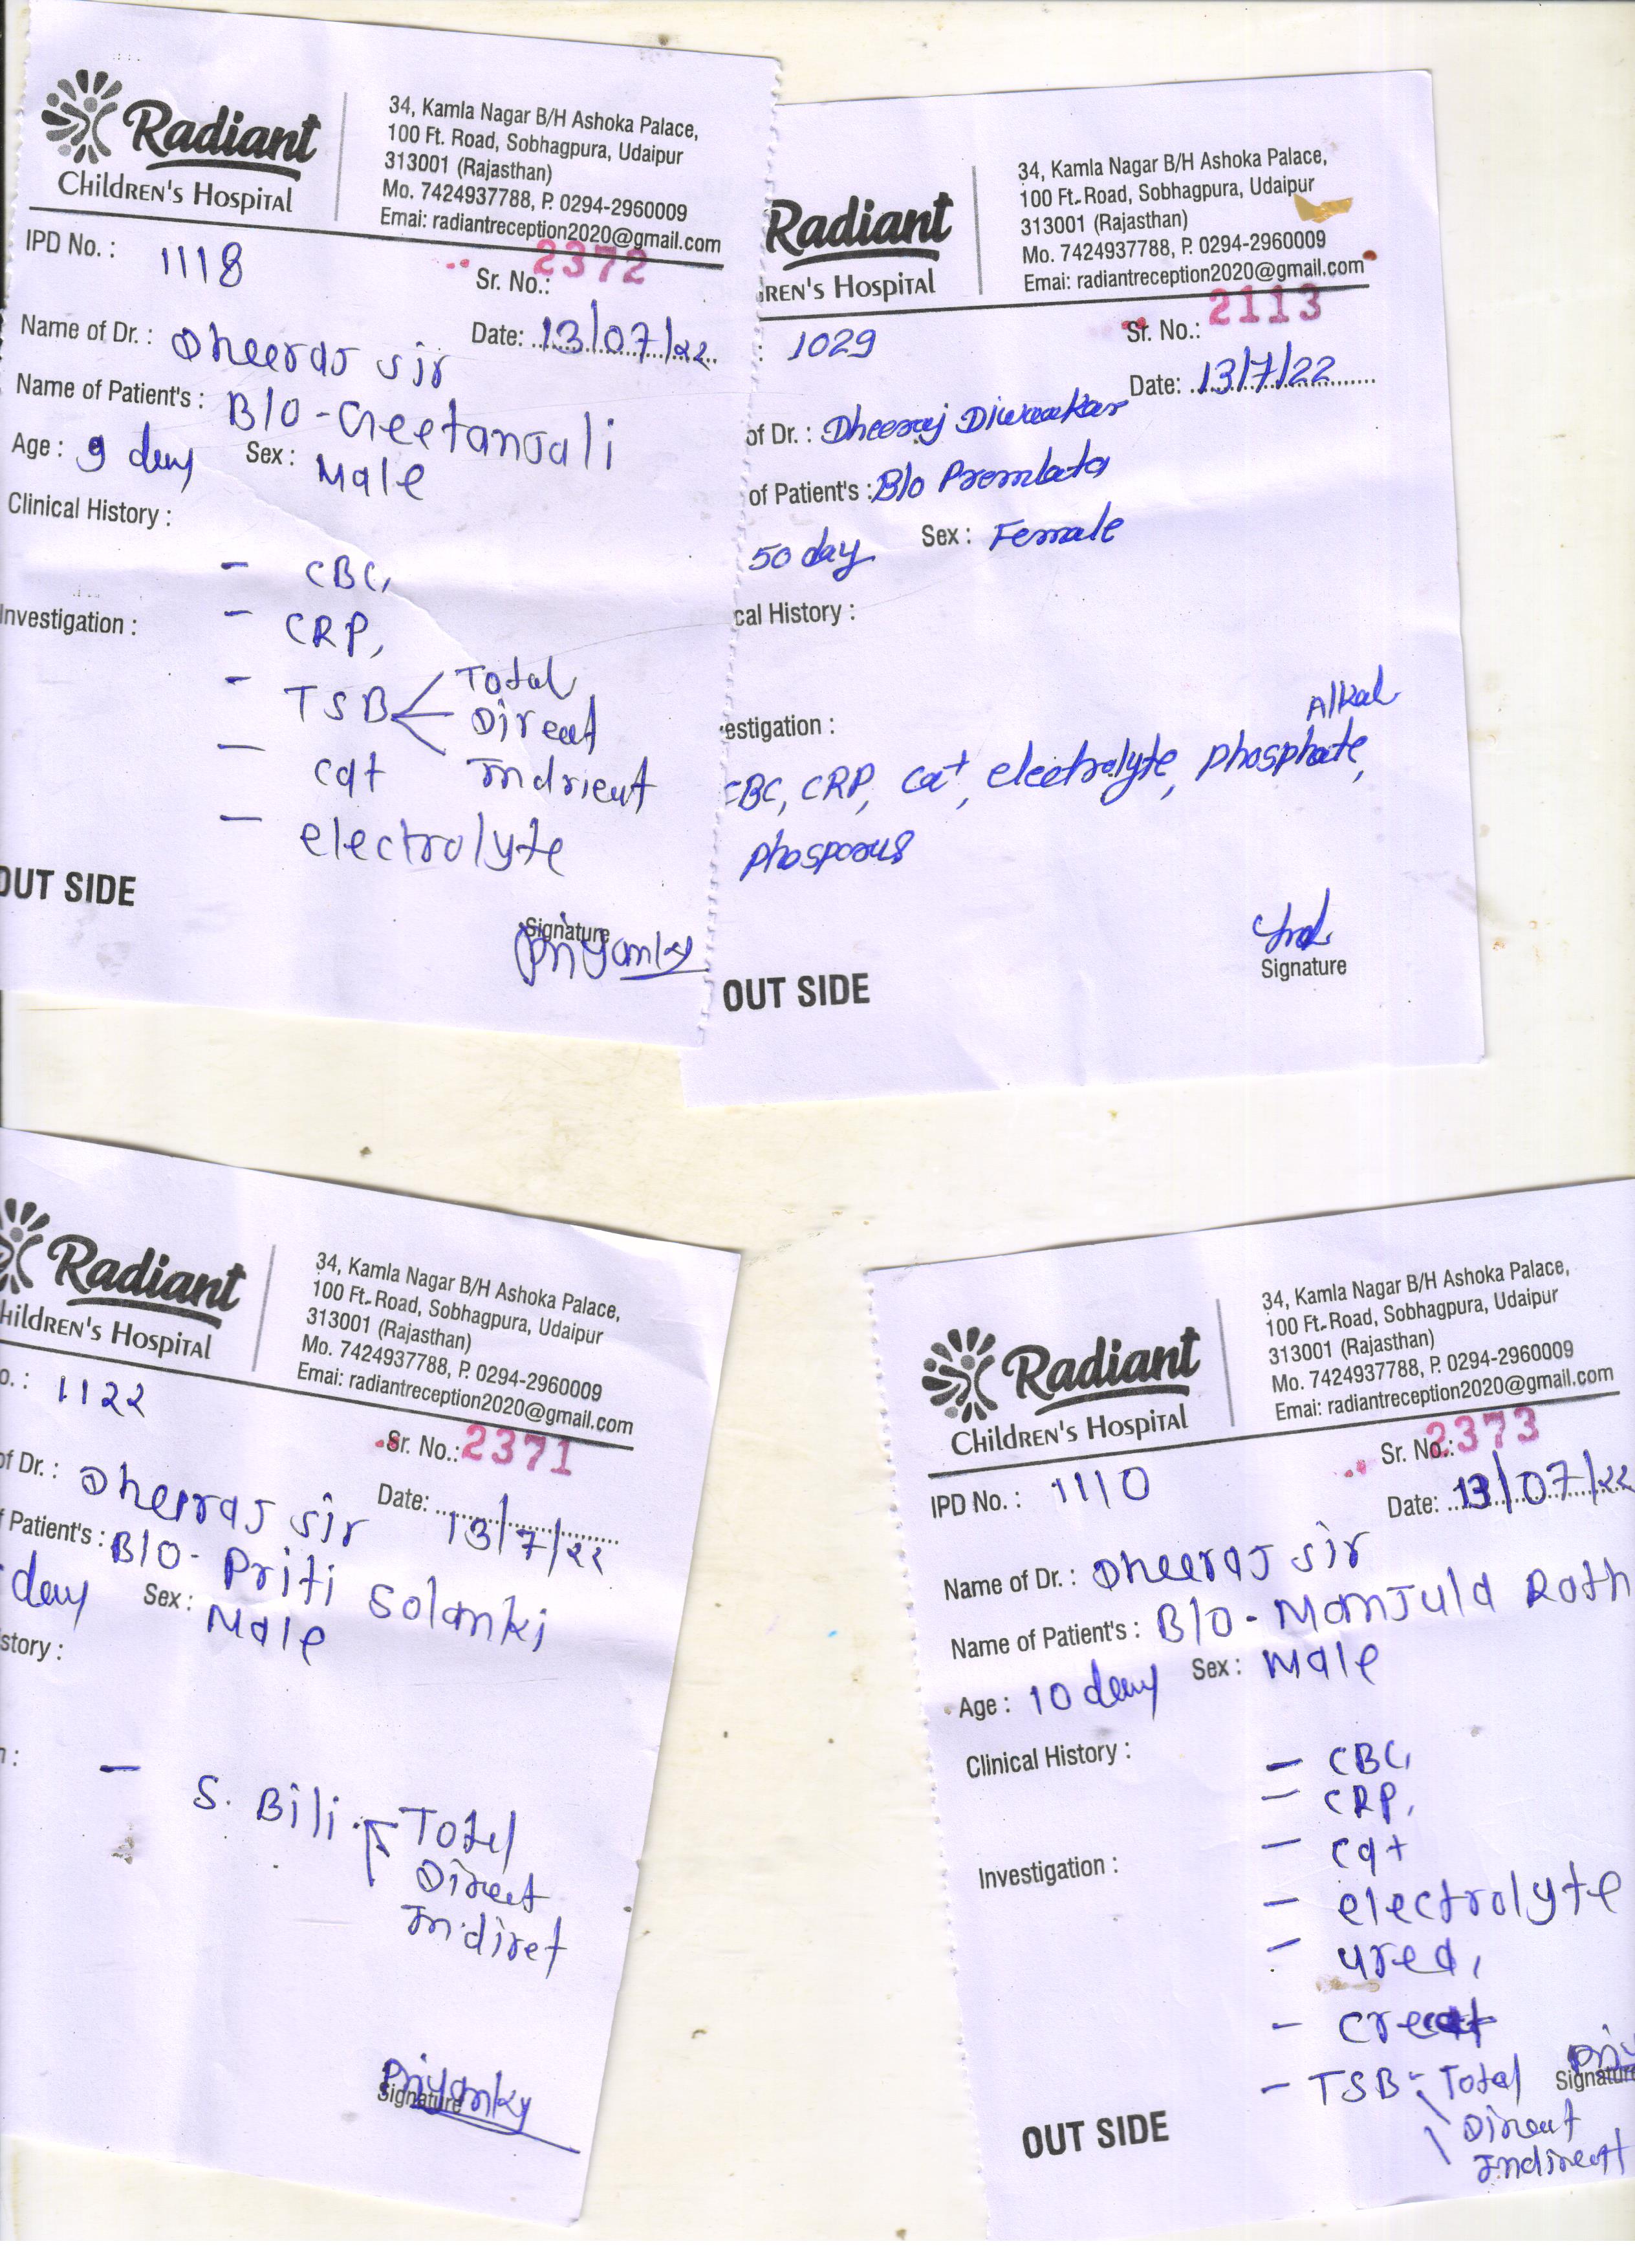 Radiant
Children's Hospital
34, Kamla Nagar B/H Ashoka Palace,
100 Ft. Road, Sobhagpura, Udaipur
313001 (Rajasthan)
Mo. 7424937788, P. 0294-2960009
Emai: radiantreception2020@gmail.com
IPD No. : 1118
Sr. No.: 2372
Name of Dr. : Dheeraj sir
Date: 13/07/22
Name of Patient's : B/O - Geetanjali
Age : 9 day Sex : Male
Clinical History :
- CBC,
Investigation : - CRP,
- TSB Total
Direct
- Ca+ Indrieut
- electrolyte
OUT SIDE
Signature
Priyanky
Radiant
REN's Hospital
34, Kamla Nagar B/H Ashoka Palace,
100 Ft. Road, Sobhagpura, Udaipur
313001 (Rajasthan)
Mo. 7424937788, P. 0294-2960009
Emai: radiantreception2020@gmail.com
: 1029
Sr. No.: 2113
Date: 13/7/22
of Dr. : Dheeraj Diwaakar
of Patient's : B/o Premlata
50 day Sex : Female
cal History :
estigation :
Alkal
CBC, CRP, Ca+, electrolyte, phosphate,
phosporus
Signature
OUT SIDE
Radiant
hildren's Hospital
34, Kamla Nagar B/H Ashoka Palace,
100 Ft. Road, Sobhagpura, Udaipur
313001 (Rajasthan)
Mo. 7424937788, P. 0294-2960009
Emai: radiantreception2020@gmail.com
o. : 1122
Sr. No.: 2371
of Dr. : Dheeraj sir
Date: 13/7/22
f Patient's : B/O - Priti Solanki
day Sex : Male
story :
n :
- S. Bili. Total
Direct
Indiret
Priyanky
Signature
Radiant
Children's Hospital
34, Kamla Nagar B/H Ashoka Palace,
100 Ft. Road, Sobhagpura, Udaipur
313001 (Rajasthan)
Mo. 7424937788, P. 0294-2960009
Emai: radiantreception2020@gmail.com
IPD No. : 1110
Sr. No.: 2373
Date: 13/07/22
Name of Dr. : Dheeraj sir
Name of Patient's : B/O - Manjula Rath
Age : 10 day Sex : Male
Clinical History :
- CBC,
- CRP,
- Ca+
Investigation :
- electrolyte
- urea,
- creat
- TSB - Total
Direct
Indirect
Priy
Signature
OUT SIDE